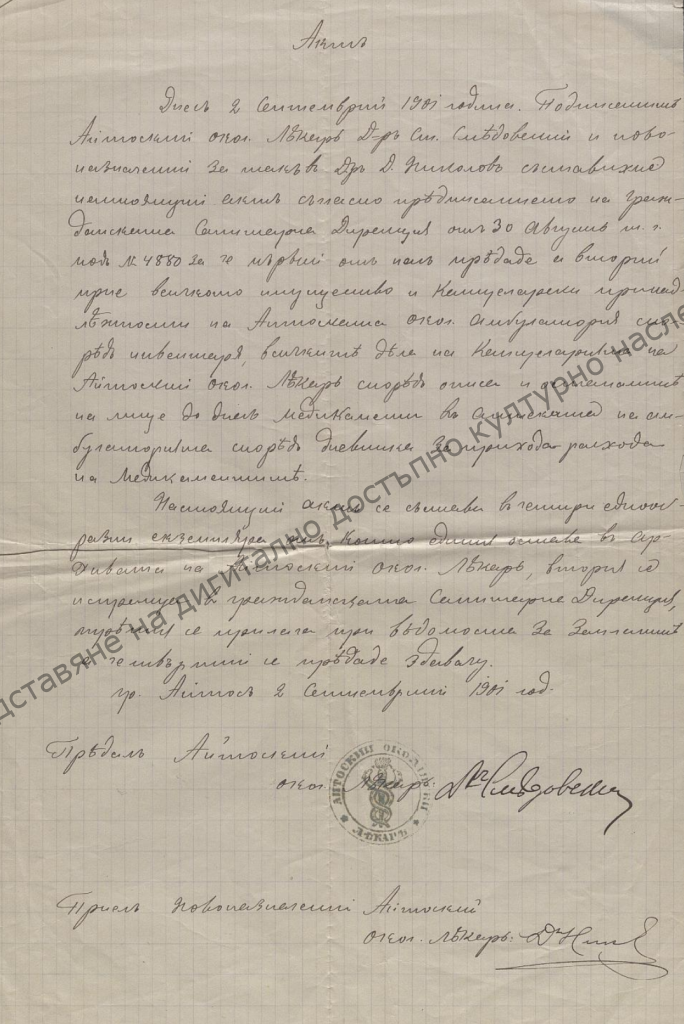 Актъ
Днесъ 2 Септемврий 1901 година. Подписанитѣ
Айтоский окол. Лѣкарь Д-ръ Ст. Слѣдовский и ново-
назначений за такъв Д-ръ Д. Николовъ съставихме
настоящий актъ съгласно прѣдписанието на Граж-
данската Санитарна Дирекция отъ 30 Августъ т. г.
подъ № 4880 за че първий отъ насъ прѣдаде а вторий
прие всичкото имущество и Канцеларски принад-
лѣжности на Айтоската окол. амбулатория спо-
рѣдъ инвентаря, всичкитѣ дѣла на Канцеларията на
Айтоский окол. Лѣкарь спорѣдъ описа и останалитѣ
на лице до днесъ медикаменти въ аптеката на ам-
булаторията спорѣдъ дневника за прихода расхода
на Медикаментитѣ.
Настоящий актъ се състави въ четири еднооб-
разни екземпляра отъ които единия остава въ ар-
хивата на Айтоский окол. Лѣкарь, втория се
испраща въ гражданската Санитарна Дирекция,
третия се прилага при вѣдомостта за Заплатитѣ
а четвъртий се прѣдаде здавачу.
гр. Айтосъ 2 Септемврий 1901 год.
Прѣдалъ Айтоский
окол. Лѣкарь: Д-ръ Слѣдовски
АЙТОСКИЙ ОКОЛИЙСКИ
ЛѢКАРЬ
Приелъ Новоназначений Айтоский
окол. Лѣкарь: Д-ръ
дставяне на дигитално достъпно културно насле